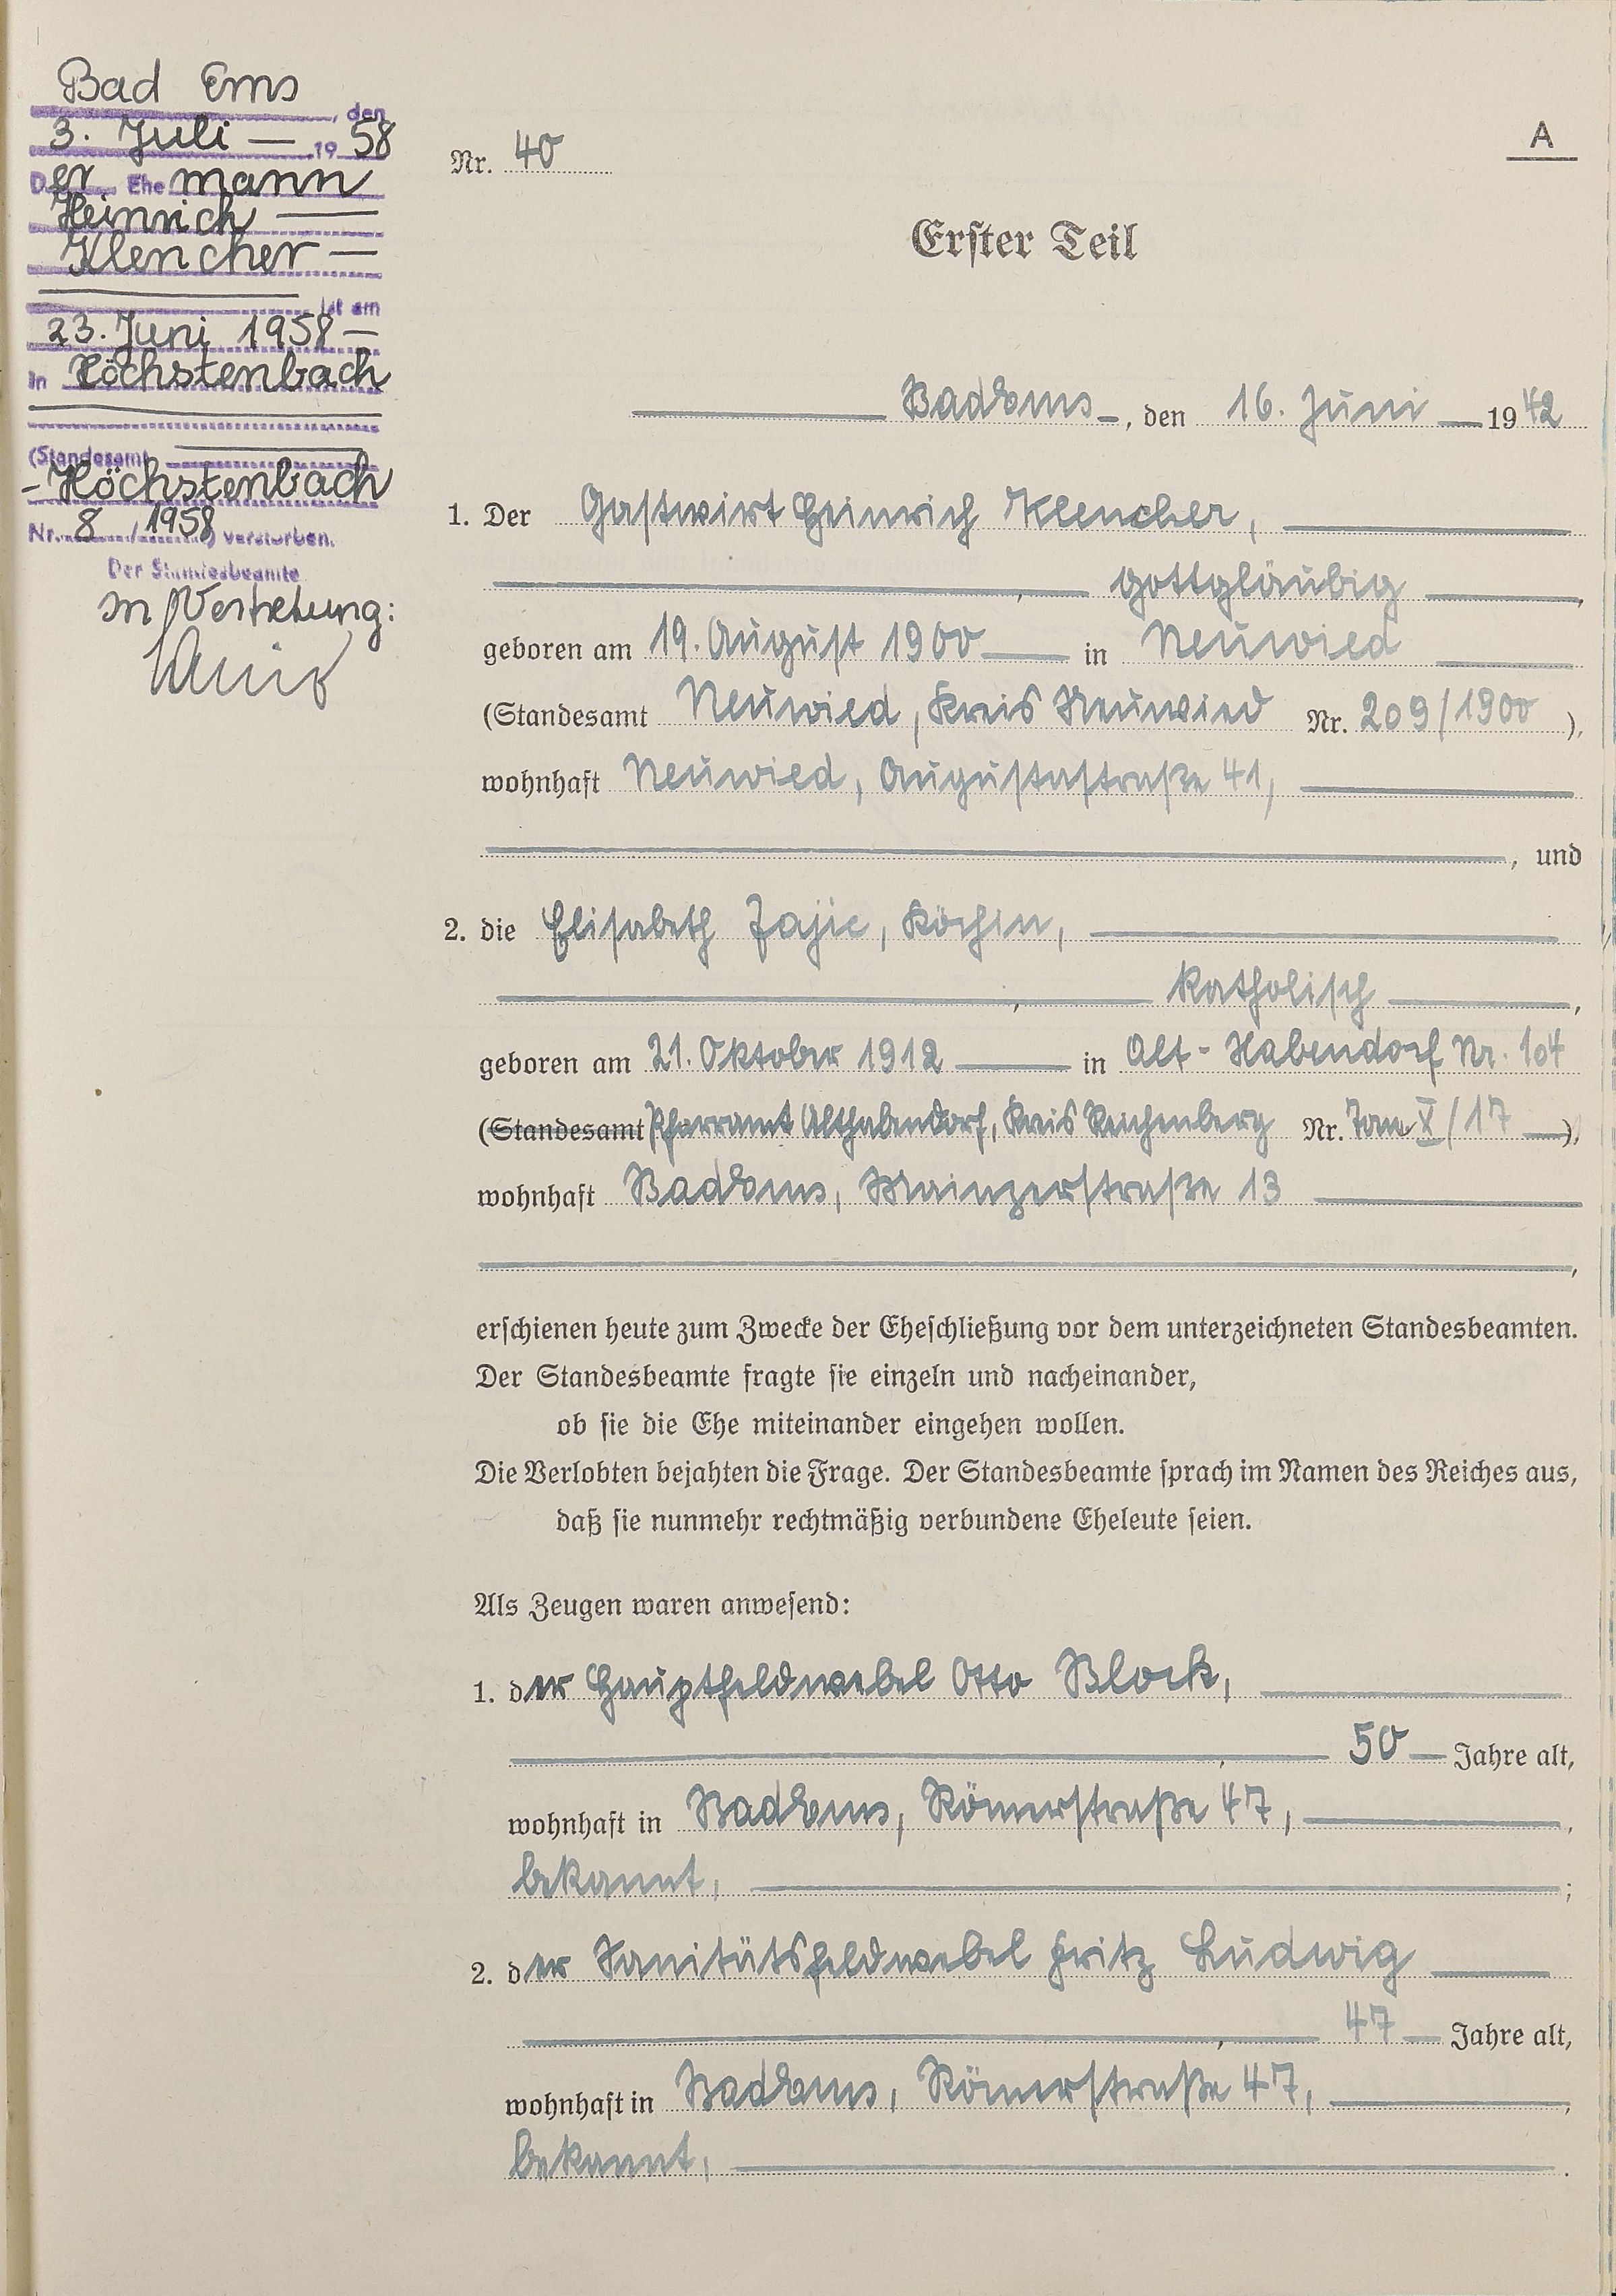 Bad Ems
, den
3. Juli — 19 58
Der Ehemann
Heinrich —
Klencher —
ist am
23. Juni 1958 —
in Höchstenbach
(Standesamt
- Höchstenbach
Nr. 8 / 1958) verstorben.
Der Standesbeamte
In Vertretung:
A
Nr. 40
Erster Teil
Bad Ems —, den 16. Juni — 1942
1. Der Gastwirt Heinrich Klencher, —
—, — gottgläubig —,
geboren am 19. August 1900 — in Neuwied —
(Standesamt Neuwied, Kreis Neuwied Nr. 209/1900 ),
wohnhaft Neuwied, Augustastraße 41, —
—, und
2. die Elisabeth Zajic, Köchin, —
—, — katholisch —,
geboren am 21. Oktober 1912 — in Alt-Habendorf Nr. 104
(Standesamt Pfarramt Althabendorf, Kreis Reichenberg Nr. Tom X/17 —),
wohnhaft Bad Ems, Mainzerstraße 13 —
—,
erschienen heute zum Zwecke der Eheschließung vor dem unterzeichneten Standesbeamten.
Der Standesbeamte fragte sie einzeln und nacheinander,
ob sie die Ehe miteinander eingehen wollen.
Die Verlobten bejahten die Frage. Der Standesbeamte sprach im Namen des Reiches aus,
daß sie nunmehr rechtmäßig verbundene Eheleute seien.
Als Zeugen waren anwesend:
1. der Hauptfeldwebel Otto Block, —
—, — 50 — Jahre alt,
wohnhaft in Bad Ems, Römerstraße 47, —,
bekannt, —;
2. der Sanitätsfeldwebel Fritz Ludwig —
—, — 47 — Jahre alt,
wohnhaft in Bad Ems, Römerstraße 47, —,
bekannt, —.